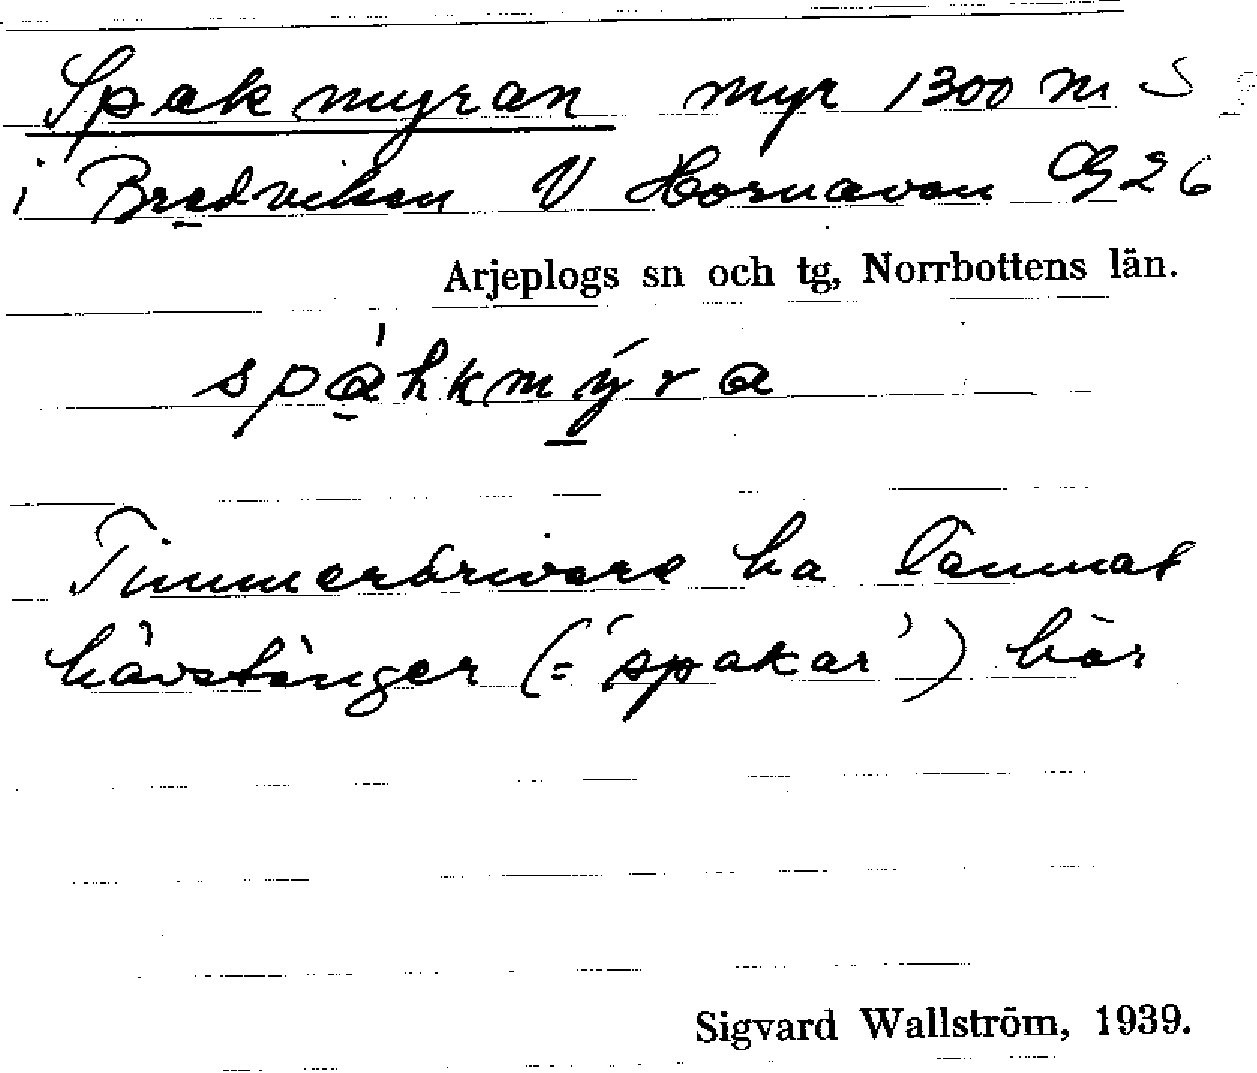 Spakmyran myr 1300 m S
i Bredviken V Hornavan G26
Arjeplogs sn och tg, Norrbottens län.
spáhkmýra
Timmerdrivare ha lämnat
hävstänger (= 'spakar') här
Sigvard Wallström, 1939.